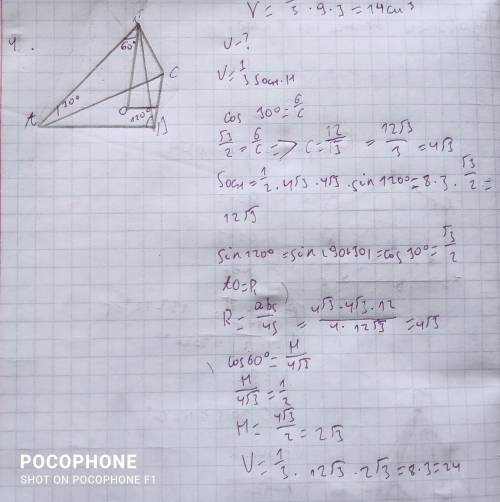 V = √3/3 · 9 · 3 = 14 cm³
4.
V - ?
V = 1/3 Sосн · H
cos 30° = 6/c
√3/2 = 6/c => c = 12/√3 = 12√3/3 = 4√3
Sосн = 1/2 · 4√3 · 4√3 · sin 120° = 8 · 3 · √3/2 =
12√3
sin 120° = sin (90+30) = cos 30° = √3/2
AO = R
R = abc/4S = 4√3 · 4√3 · 12 / 4 · 12√3 = 4√3
cos 60° = H/4√3
H/4√3 = 1/2
H = 4√3/2 = 2√3
V = 1/3 · 12√3 · 2√3 = 8 · 3 = 24
60°
C
30°
O
120°
A
B
POCOPHONE
SHOT ON POCOPHONE F1